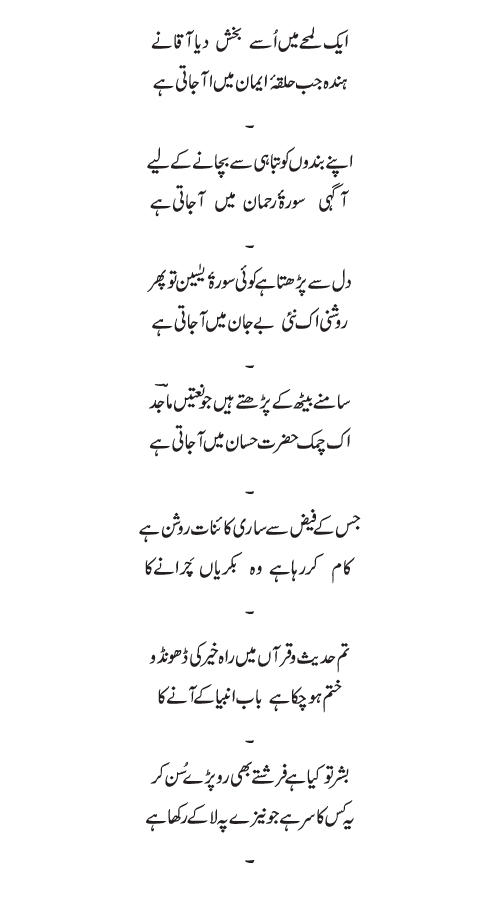 ایک لمحے میں اُسے بخش دیا آقا نے
ہندہ جب حلقۂ ایمان میں اآ جاتی ہے
۔
اپنے بندوں کو تباہی سے بچانے کے لیے
آگہی سورۂ رحمان میں آ جاتی ہے
۔
دل سے پڑھتا ہے کوئی سورۂ یٰسین تو پھر
روشنی اک نئی بے جان میں آ جاتی ہے
۔
سامنے بیٹھ کے پڑھتے ہیں جو نعتیں ماجدؔ
اک چمک حضرت حسان میں آ جاتی ہے
۔
جس کے فیض سے ساری کائنات روشن ہے
کام کر رہا ہے وہ بکریاں چَرانے کا
۔
تم حدیث و قرآں میں راہ خیر کی ڈھونڈو
ختم ہو چکا ہے باب انبیا کے آنے کا
۔
بشر تو کیا ہے فرشتے بھی رو پڑے سُن کر
یہ کس کا سر ہے جو نیزے پہ لا کے رکھا ہے
۔